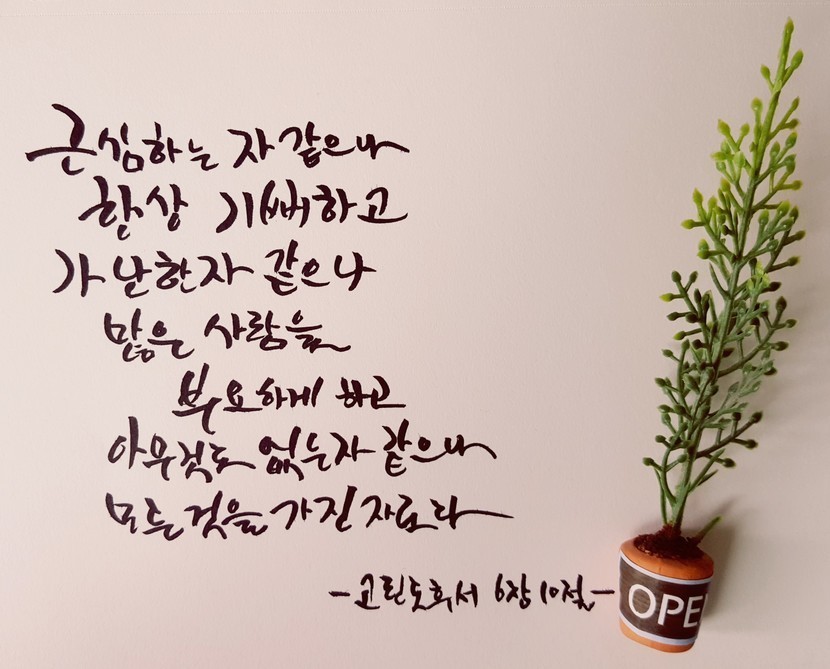 근심하는 자 같으나
항상 기뻐하고
가난한자 같으나
많은 사람을
부요하게 하고
아무것도 없는자 같으나
모든것을 가진 자로다
-고린도후서 6장 10절-
OPE